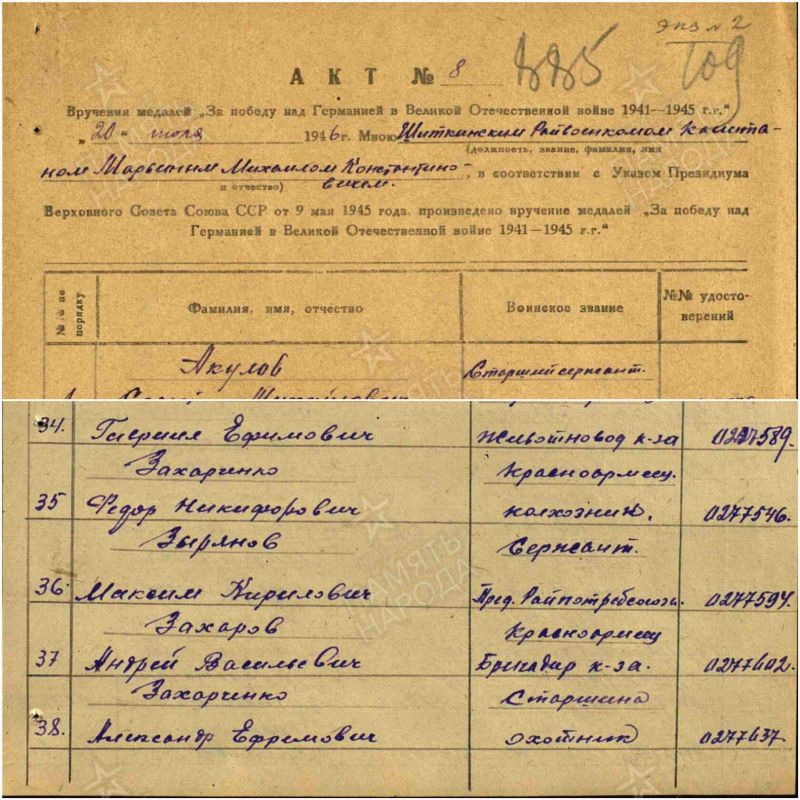 экз № 2
885 109
АКТ № 8
Вручения медалей „За победу над Германией в Великой Отечественной войне 1941—1945 г.г."
„20" июля 1946 г. Мною Шиткинским Райвоенкомом Капита-
(должность, звание, фамилия, имя
ном Михаилом Константино-
и отчество) вичем., в соответствии с Указом Президиума
Верховного Совета Союза ССР от 9 мая 1945 года, произведено вручение медалей „За победу над
Германией в Великой Отечественной войне 1941—1945 г.г."
№№ по порядку Фамилия, имя, отчество Воинское звание №№ удосто-
верений
Акулов Старший сержант.
34. Гавриил Ефимович Животновод к-за 0277589.
Захаренко Красноармеец.
35 Федор Никифорович колхозник. 0277546.
Зырянов Сержант.
36. Максим Кирилович Пред. Райпотребсоюза 0277594.
Захаров Красноармеец
37 Андрей Васильевич Бригадир к-за. 0277602.
Захаренко Старшина
38. Александр Ефремович охотник 0277637.
ПАМЯТЬ НАРОДА